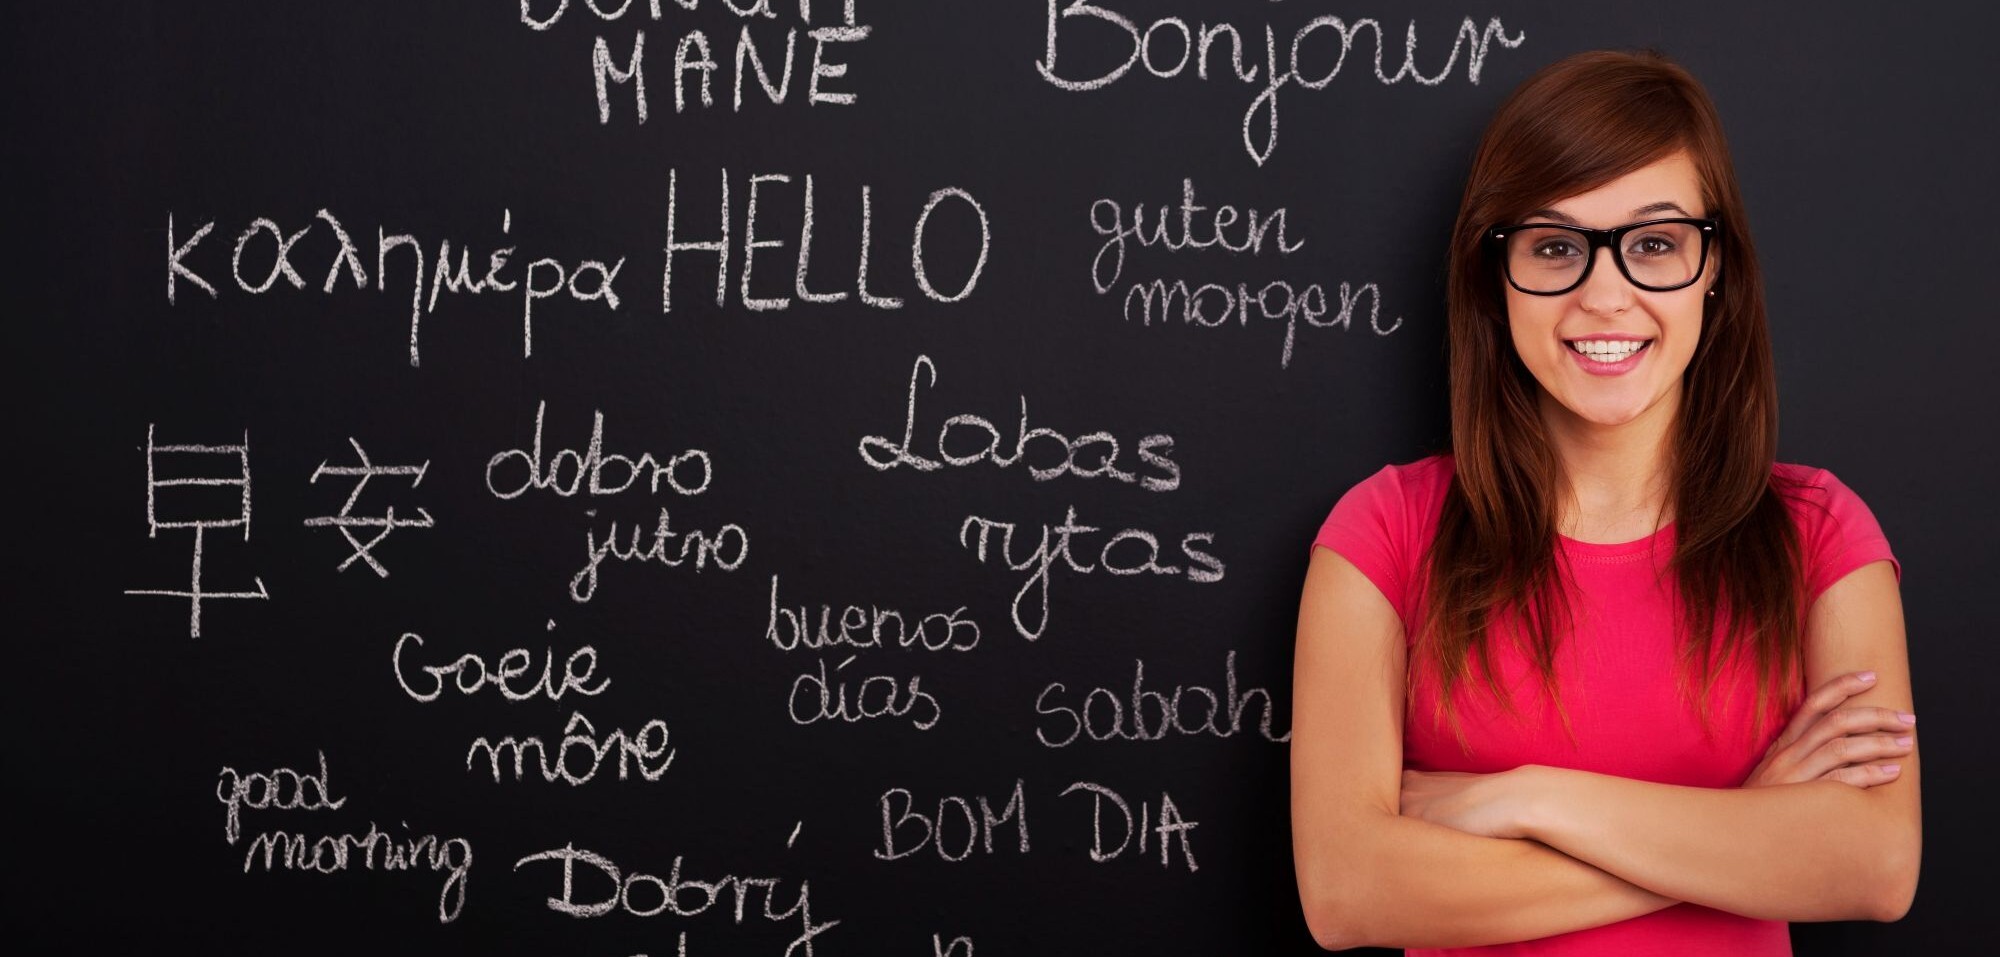 MANE
Bonjour
καλημέρα
HELLO
guten
morgen
早安
dobro
jutro
Labas
rytas
buenos
días
Goeie
môre
sabah
good
morning
BOM DIA
Dobrý